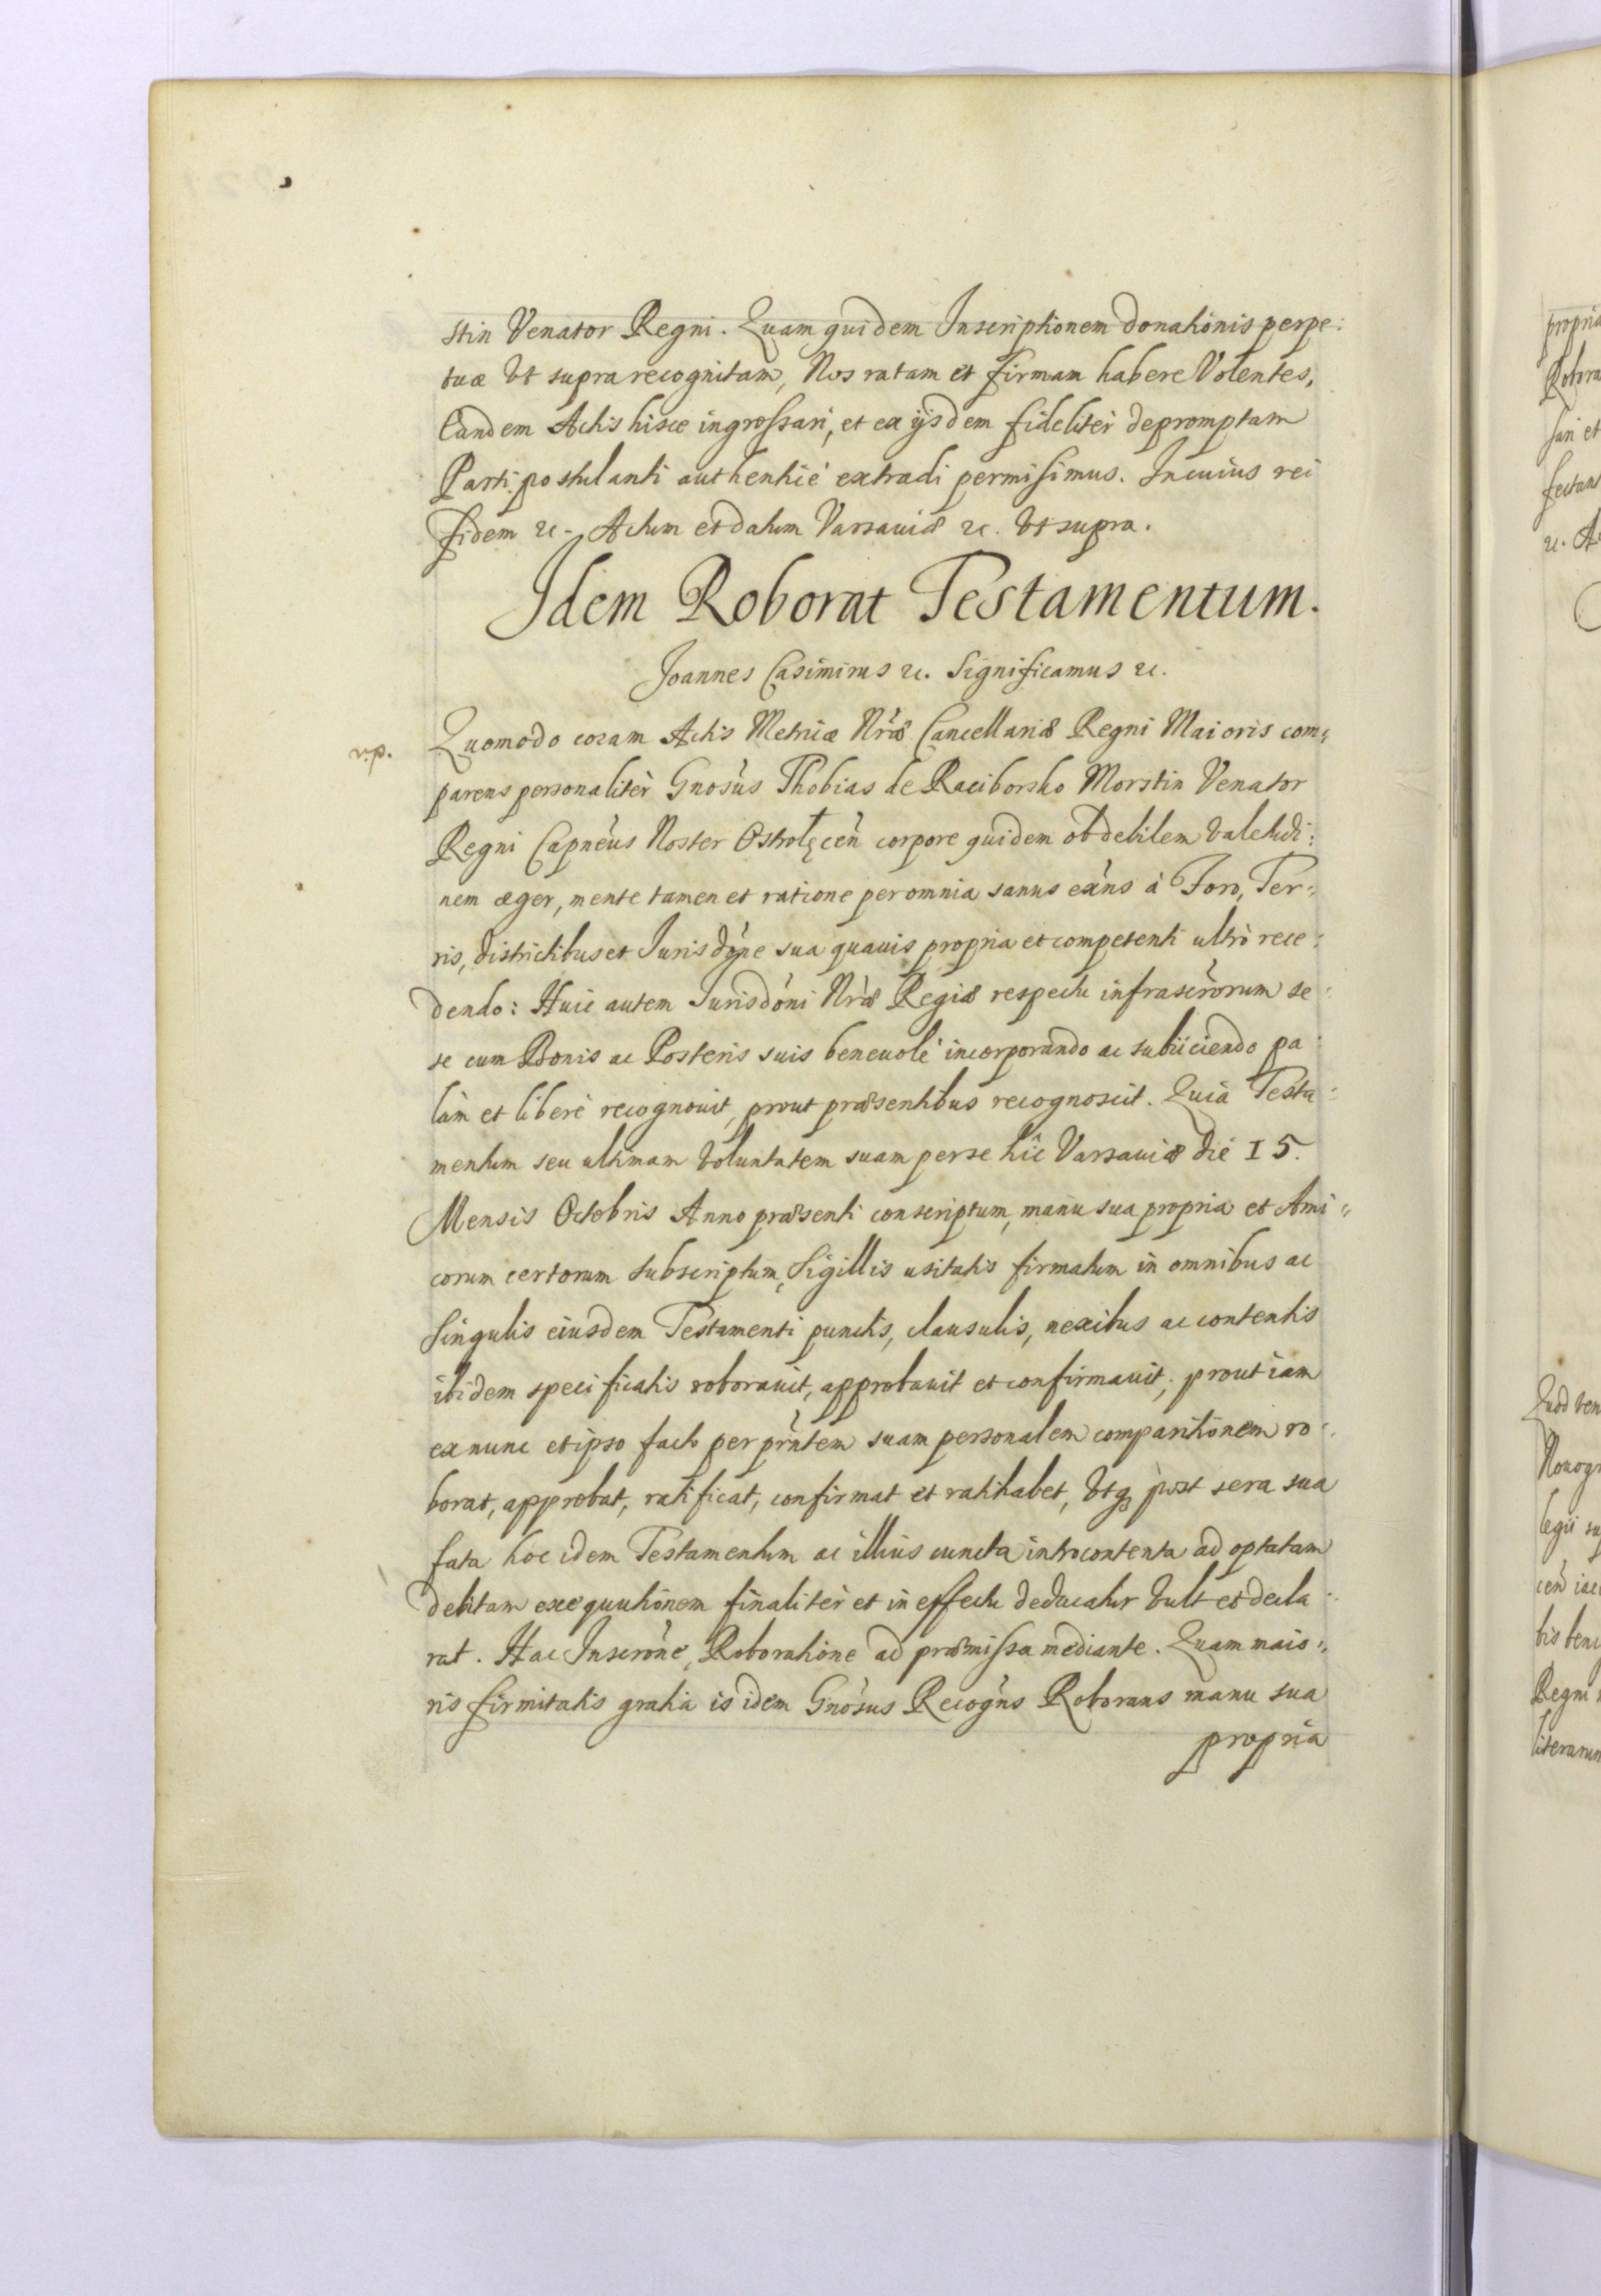 stin Venator Regni. Quam quidem Inscriptionem donationis perpe:
tuæ Vt supra recognitam, Nos ratam et firmam habere Volentes,
Eandem Actis hisce ingrossari, et ex ijsdem fideliter depromptam
Parti postulanti authenticè extradi permisimus. In cuius rei
fidem &c. Actum et datum Varsauiæ &c. Vt supra.
Idem Roborat Testamentum.
Joannes Casimirus &c. Significamus &c.
v.p.
Quomodo coram Actis Metricæ Nræ Cancellariæ Regni Maioris com:
parens personalitèr Gnosus Thobias de Raciborsko Morstin Venator
Regni Capneus Noster Ostrołęcen corpore quidem ob debilem Valetudi:
nem æger, mente tamen et ratione per omnia sanus exns à Foro, Ter:
ris, districtibus et Jurisdone sua quauis propria et competenti ultrò rece:
dendo: Huic autem Jurisdoni Nræ Regiæ respectu infrascrorum se:
se cum Bonis ac Posteris suis beneuolè incorporando ac subiiciendo pa:
làm et liberè recognouit, prout præsentibus recognoscit. Quia Testa:
mentum seu ultimam Voluntatem suam per se hîc Varsauiæ die 15.
Mensis Octobris Anno præsenti conscriptum, manu sua propria et Ami:
corum certorum subscriptum, Sigillis usitatis firmatum in omnibus ac
Singulis eiusdem Testamenti punctis, clausulis, nexibus ac contentis
ibidem specificatis roborauit, approbauit et confirmauit, prout iam
ex nunc et ipso facto per prntem suam personalem comparitionem ro:
borat, approbat, ratificat, confirmat et ratihabet, Vtq; post sera sua
fata hoc idem Testamentum ac illius cuncta introcontenta ad optatam
debitam exequutionem finalitèr et in effectu deducatur Vult et decla:
rat. Hac Inscrone, Roboratione ad præmissa mediante. Quam maio:
ris firmitatis gratia is idem Gnosus Recogns Roborans manu sua
propria